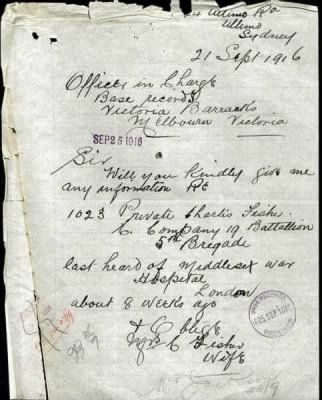 Ultimo Rd
Ultimo
Sydney
21 Sept 1916
Officer in Charge
Base records
Victoria Barracks
Melbourn Victoria
SEP 25 1916
Sir
Will you kindly give me
any information Re
1023 Private Charles Fisher
C. Company 19 Battallion
5th Brigade
last heard of Middlesex war
Hospital
London
about 8 weeks ago
& Oblige
Mrs C Fisher
Wife